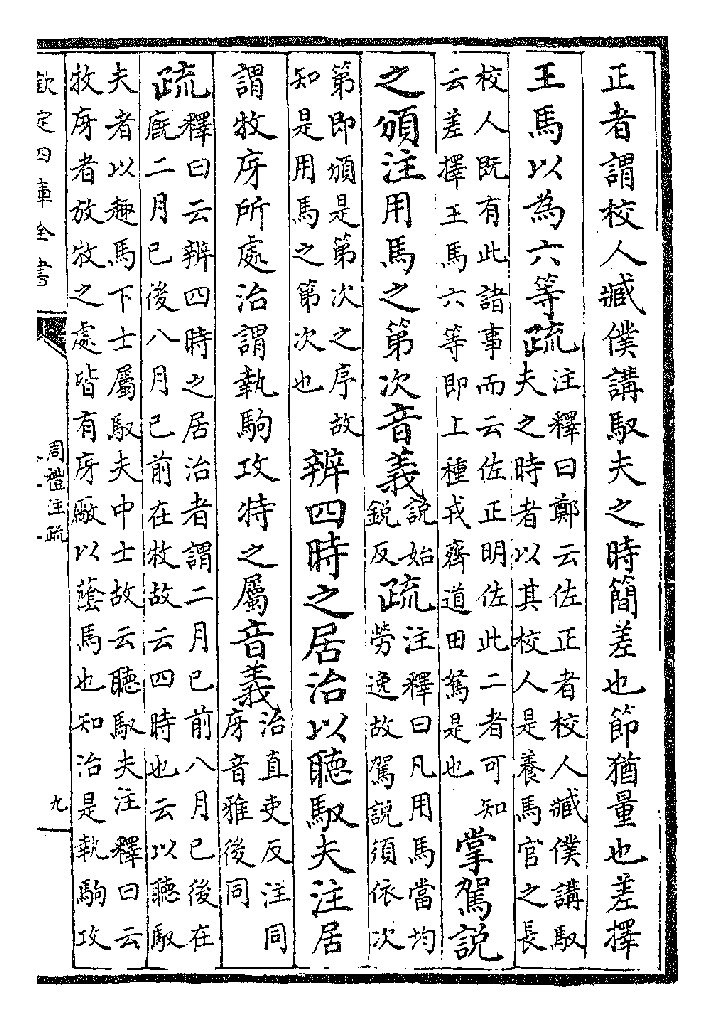 正者謂校人臧僕講馭夫之時簡差也節猶量也差擇
王馬以為六等疏注釋曰鄭云佐正者校人臧僕講馭
夫之時者以其校人是養馬官之長
校人既有此諸事而云佐正明佐此二者可知
云差擇王馬六等即上種戎齊道田駑是也掌駕說
之頒注用馬之第次音義說始
銳反疏注釋曰凡用馬當均
勞逸故駕說須依次
第即頒是第次之序故
知是用馬之第次也辨四時之居治以聽馭夫注居
謂牧庌所處治謂執駒攻特之屬音義治直吏反注同
庌音雅後同
疏釋曰云辨四時之居治者謂二月已前八月已後在
廐二月已後八月已前在牧故云四時也云以聽馭
夫者以趣馬下士屬馭夫中士故云聽馭夫注釋曰云
牧庌者放牧之處皆有庌廠以蔭馬也知治是執駒攻
欽定四庫全書
周禮注疏
九